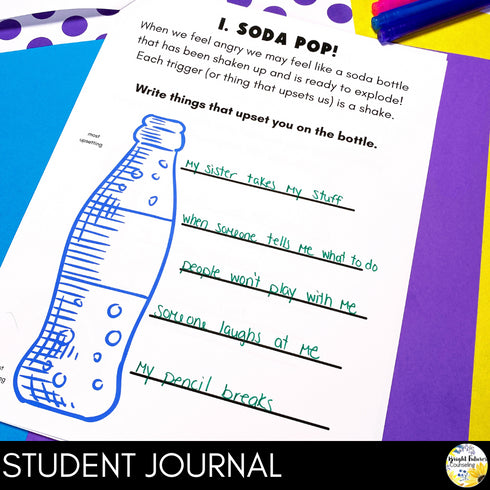 1. SODA POP!
When we feel angry we may feel like a soda bottle
that has been shaken up and is ready to explode!
Each trigger (or thing that upsets us) is a shake.
Write things that upset you on the bottle.
most
upsetting
My sister takes My stuff
when someone tells Me what to do
people won't play with me
Someone laughs at me
My pencil breaks
STUDENT JOURNAL
Bright Futures
Counseling